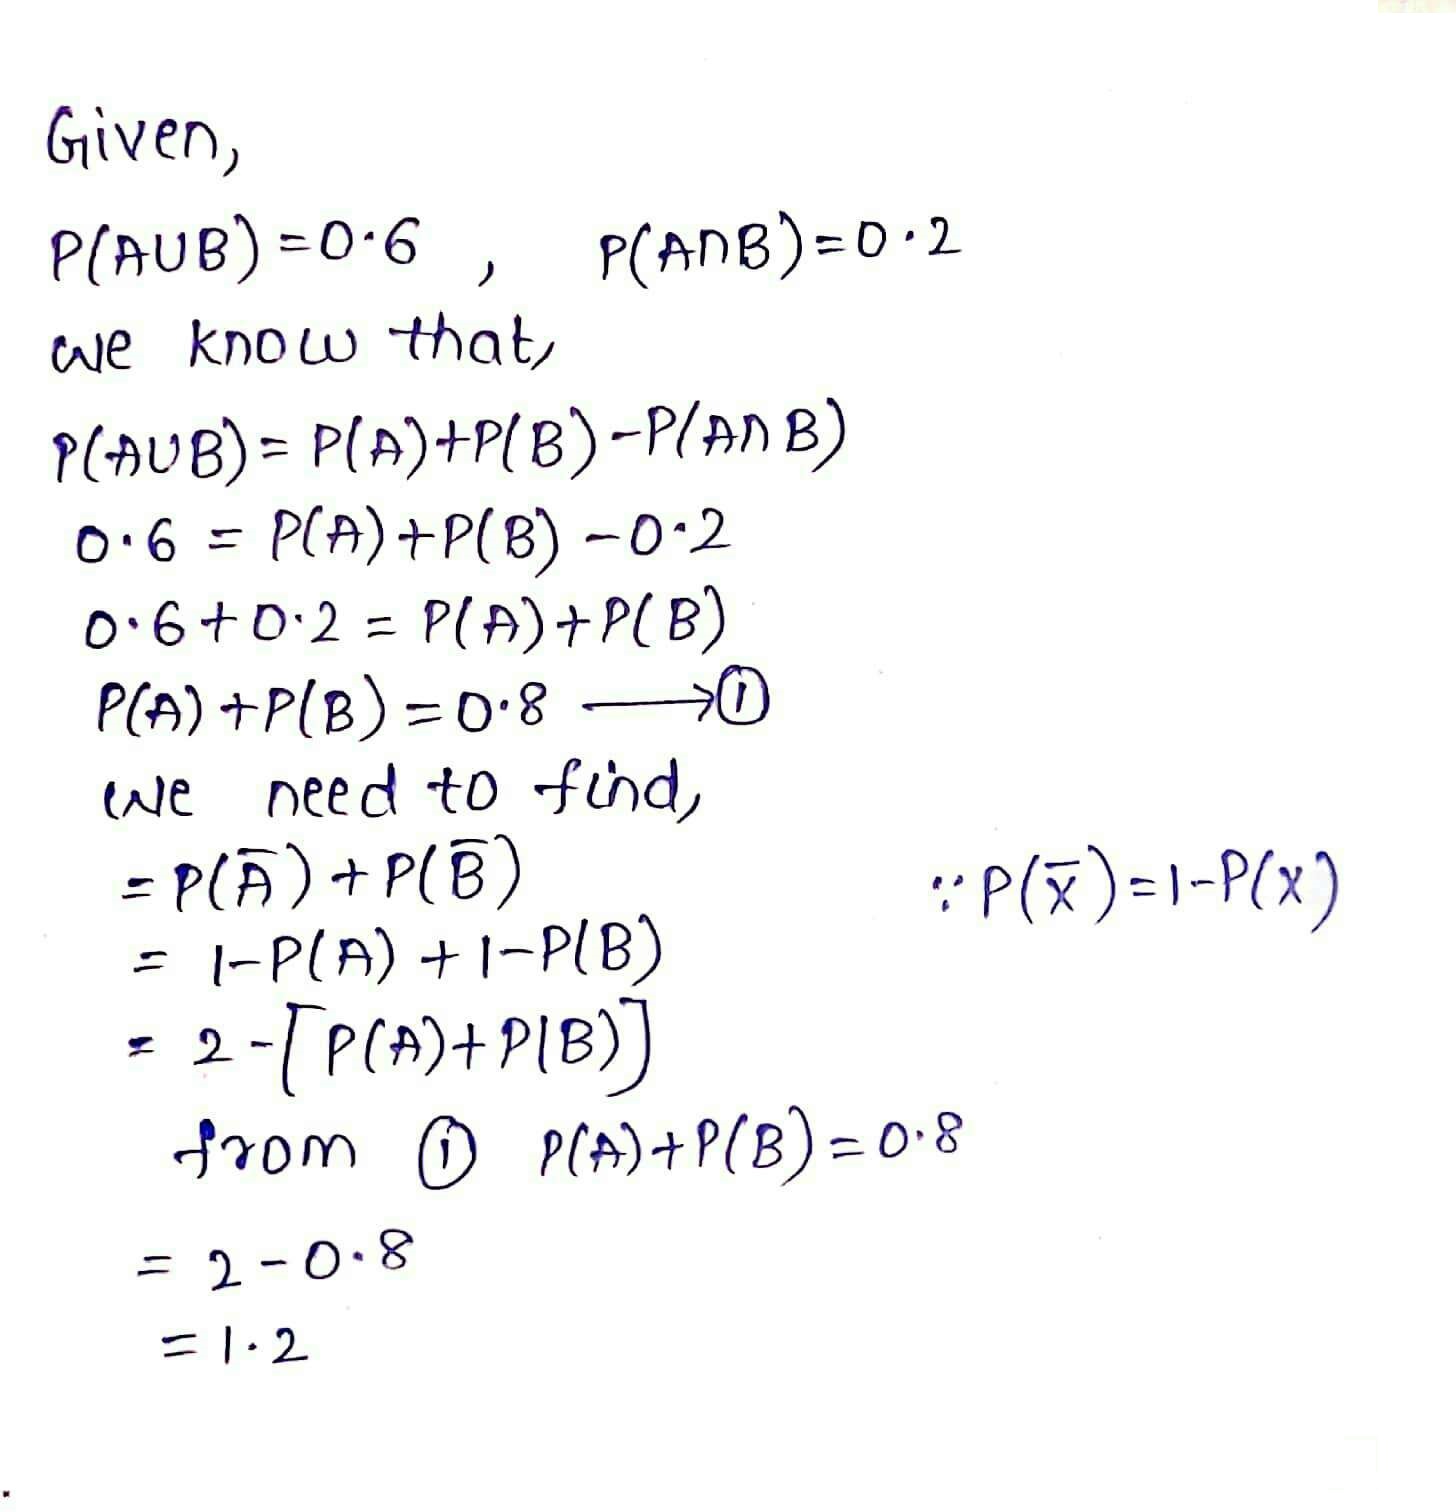 Given,
P(A∪B)=0·6 , P(A∩B)=0·2
we know that,
P(A∪B)= P(A)+P(B)-P(A∩B)
0·6 = P(A)+P(B) -0·2
0·6+0·2 = P(A)+P(B)
P(A)+P(B)=0·8 ⟶①
we need to find,
=P(Ā)+P(B̄) ∵P(x̄)=1-P(x)
= 1-P(A) +1-P(B)
= 2-[P(A)+P(B)]
from ① P(A)+P(B)=0·8
= 2-0·8
=1·2